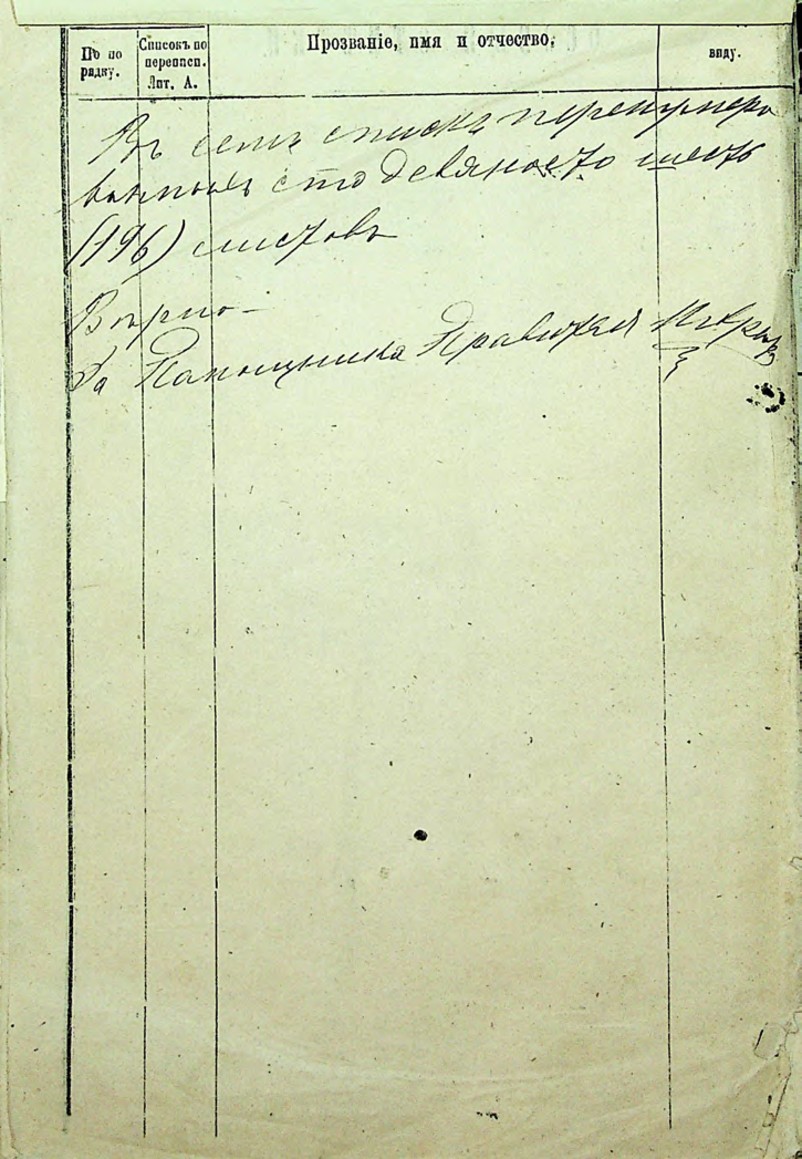 По по
рядку.
Списокъ по
переписи.
Лит. А.
Прозваніе, имя и отчество.
виду.
Въ семъ спискѣ перенумеро
ванныхъ сто девяносто шесть
(196) листовъ
Вѣрно
За Помощника